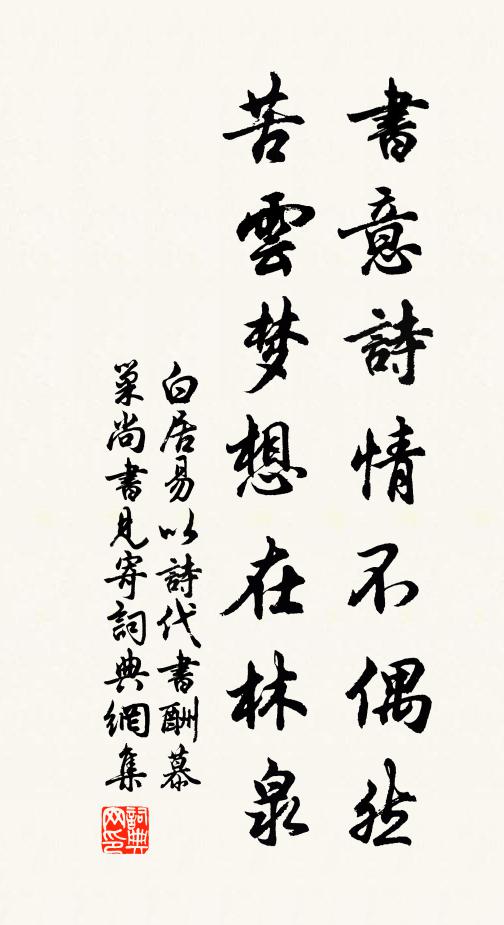 書意詩情不偶然
苦雲梦想在林泉
白居易以詩代書酬慕
巢尚書見寄詞典網集
詞典
网印